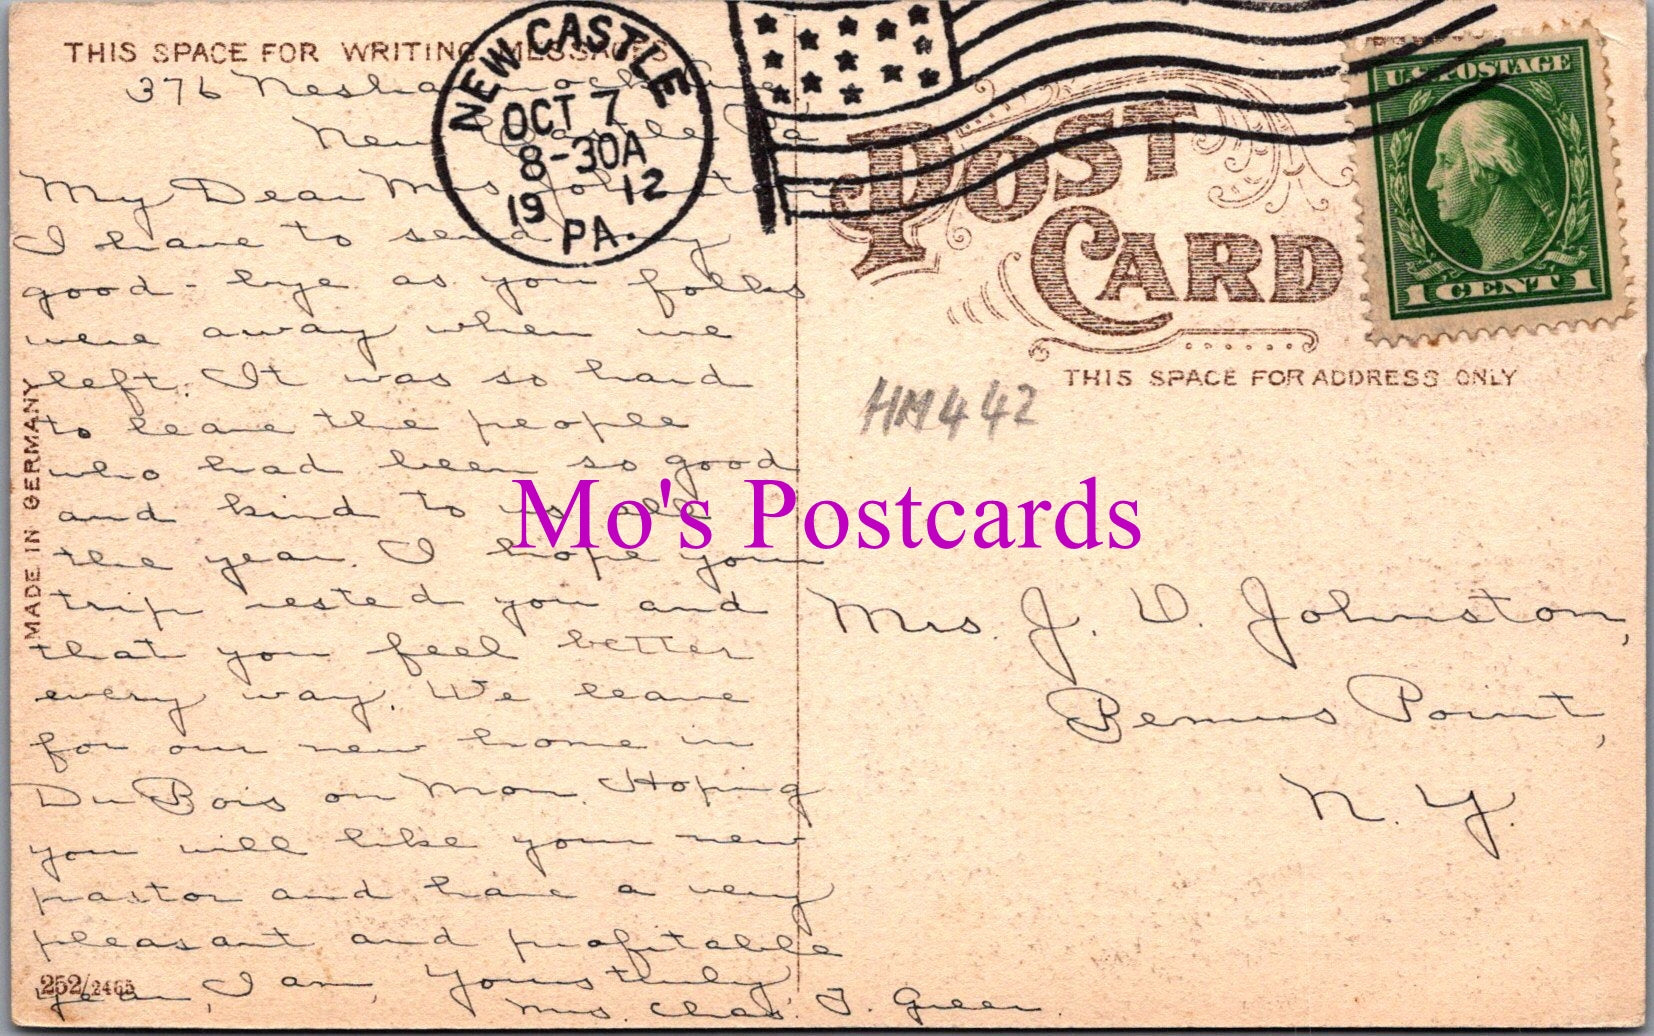 THIS SPACE FOR WRITING MESSAGES
376 Neshannock Ave,
New Castle Pa
My Dear Mrs Johnston,
I have to send my
good-bye as you folks
were away when we
left. It was so hard
to leave the people
who had been so good
and kind to us all
the year. I hope your
trip rested you and
that you feel better
every way. We leave
for our new home in
DuBois on Mon. Hoping
you will like your new
pastor and have a very
pleasant and profitable
year, I am, Yours truly
Mrs. Chas. T. Green.
252/2465
MADE IN GERMANY
NEW CASTLE
OCT 7
8-30A
1912
PA.
POST
CARD
U.S. POSTAGE
1 CENT 1
THIS SPACE FOR ADDRESS ONLY
HM442
Mo's Postcards
Mrs. J. D. Johnston,
Bemus Point,
N. Y.